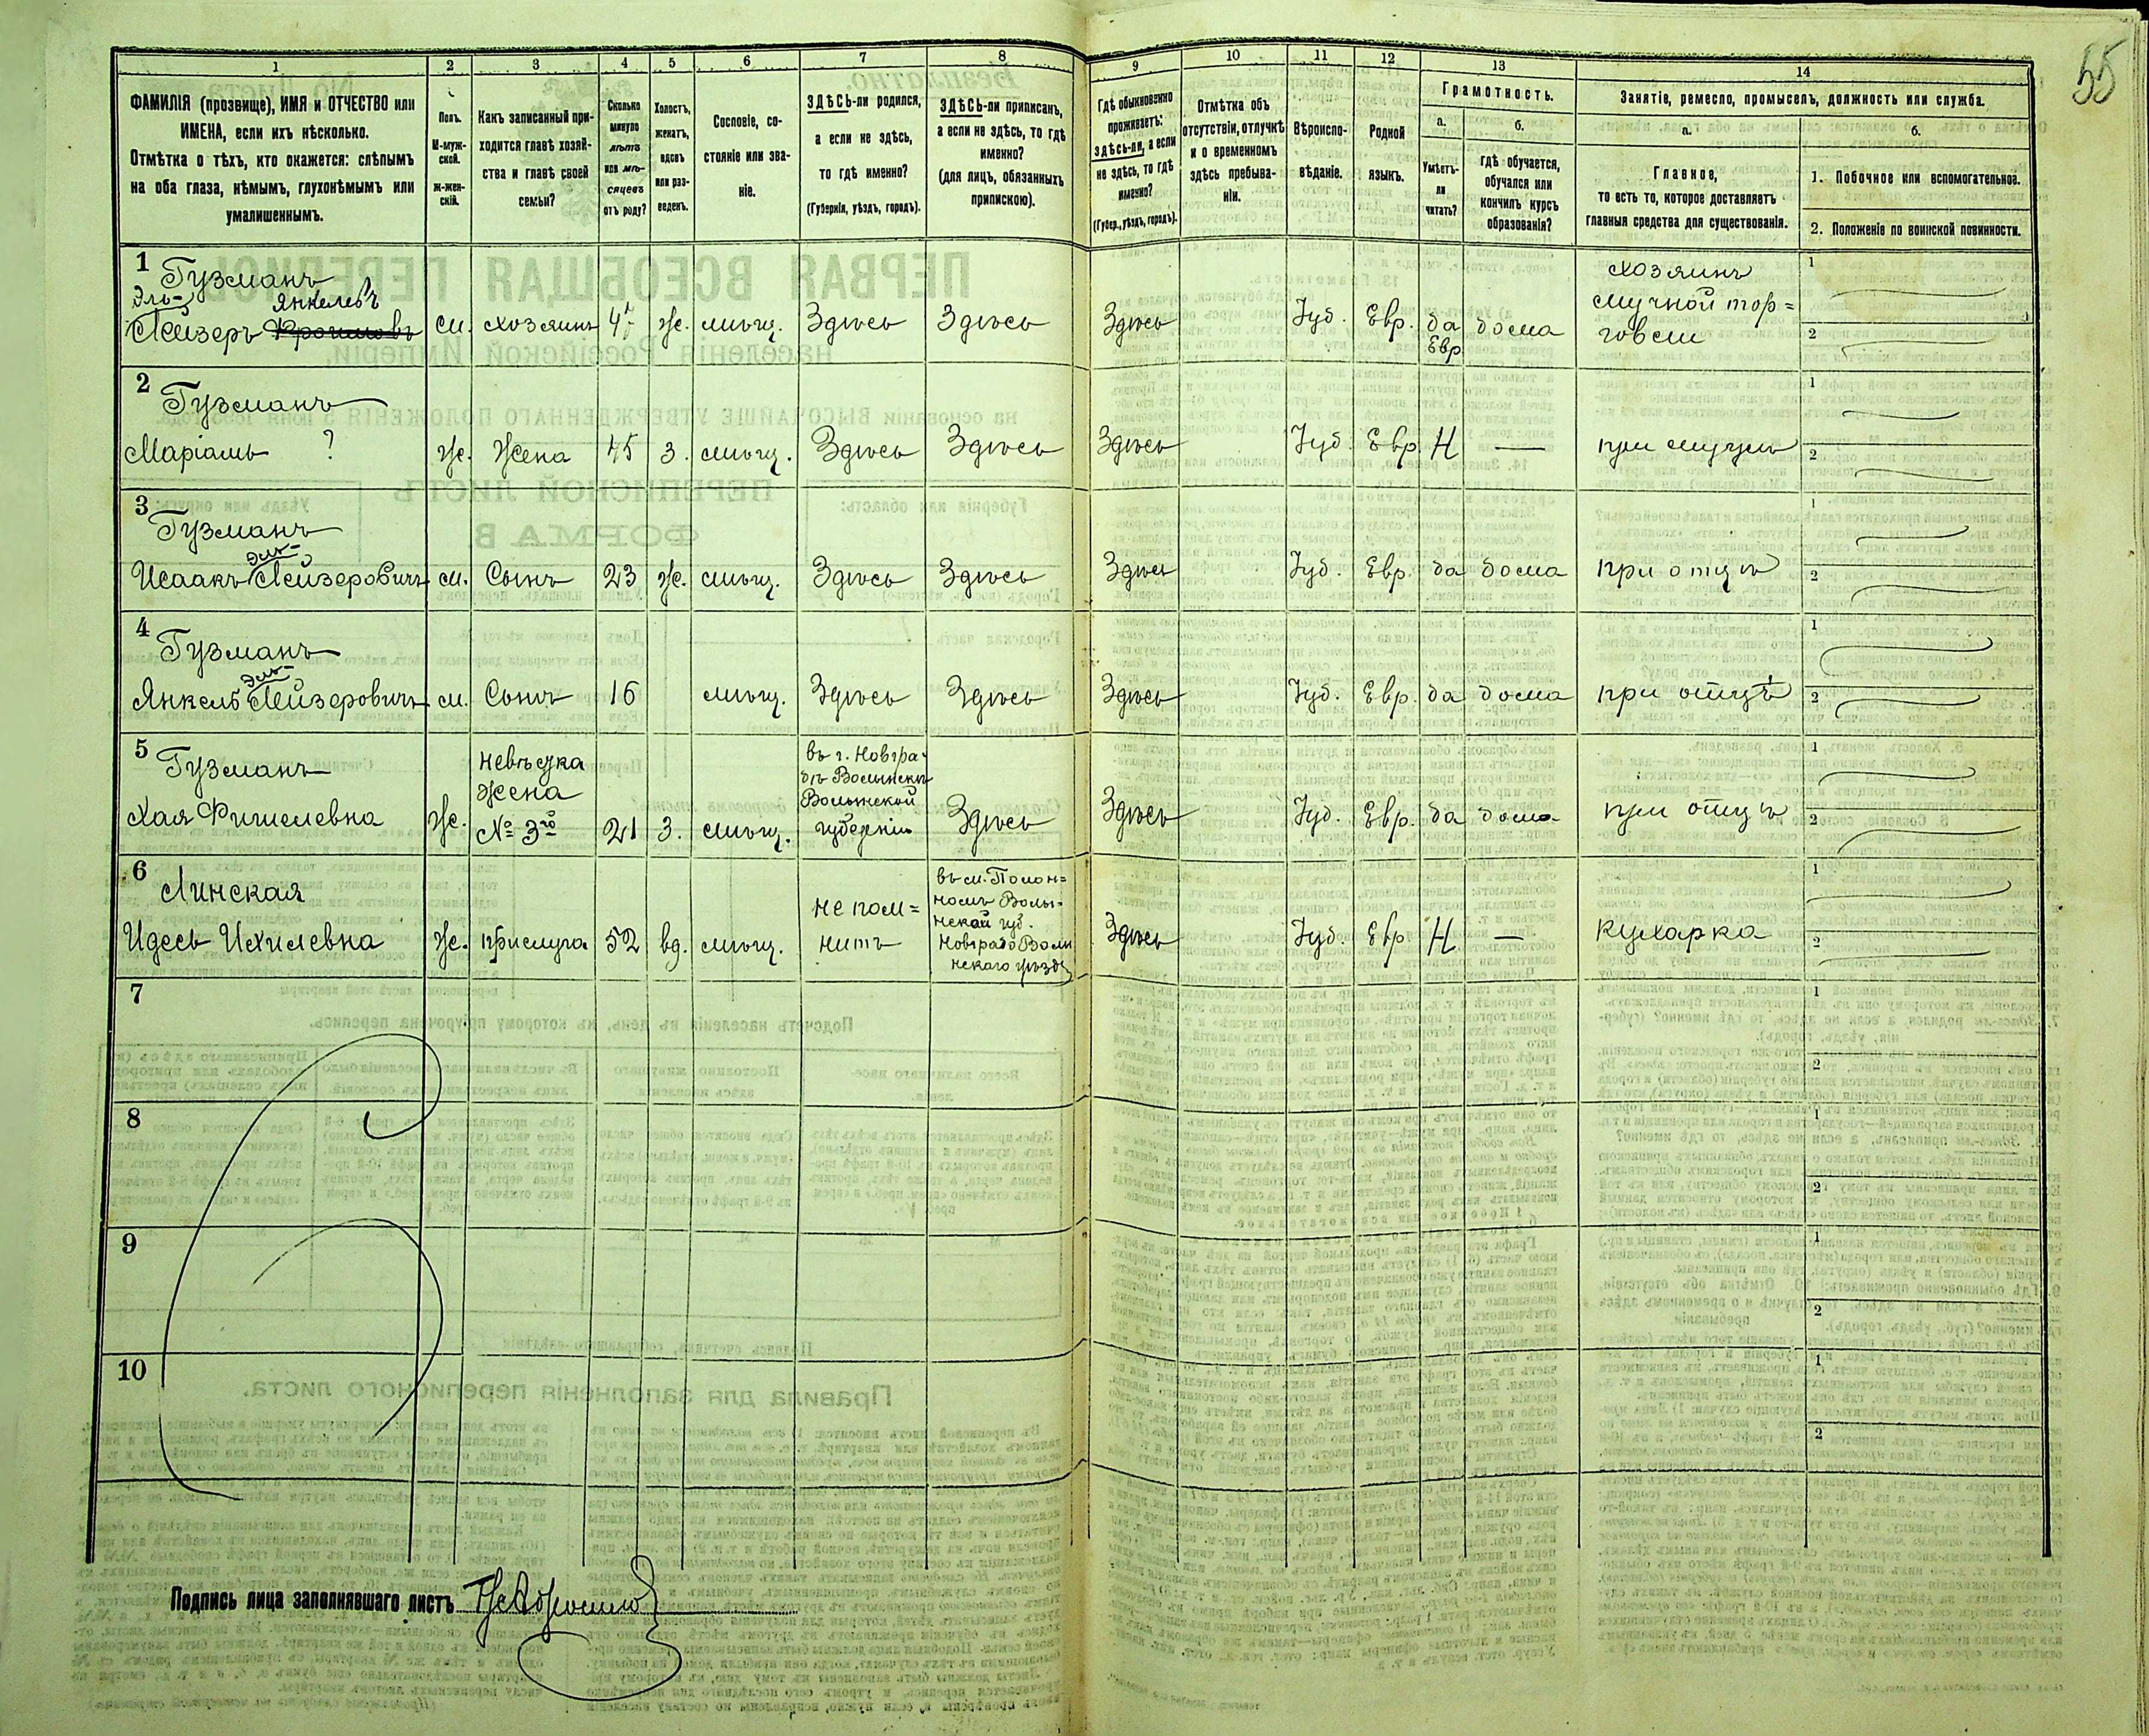 55
1
2
3
4
5
6
7
8
9
10
11
12
13
14
ФАМИЛІЯ (прозвище), ИМЯ и ОТЧЕСТВО или
ИМЕНА, если ихъ нѣсколько.
Отмѣтка о тѣхъ, кто окажется: слѣпымъ
на оба глаза, нѣмымъ, глухонѣмымъ или
умалишеннымъ.
Полъ.
М-муж-
ской.
Ж-жен-
скій.
Какъ записанный при-
ходится главѣ хозяй-
ства и главѣ своей
семьи?
Сколько
минуло
лѣтъ
или мѣ-
сяцевъ
отъ роду?
Холостъ,
женатъ,
вдовъ
или раз-
веденъ.
Сословіе, со-
стояніе или зва-
ніе.
ЗДѢСЬ-ли родился,
а если не здѣсь,
то гдѣ именно?
(Губернія, уѣздъ, городъ).
ЗДѢСЬ-ли приписанъ,
а если не здѣсь, то гдѣ
именно?
(для лицъ, обязанныхъ
припискою).
Гдѣ обыкновенно
проживаетъ:
здѣсь-ли, а если
не здѣсь, то гдѣ
именно?
(Губер., уѣздъ, городъ).
Отмѣтка объ
отсутствіи, отлучкѣ
и о временномъ
здѣсь пребыва-
ніи.
Вѣроиспо-
вѣданіе.
Родной
языкъ.
Грамотность.
а.
Умѣетъ-
ли
читать?
б.
гдѣ обучается,
обучался или
кончилъ курсъ
образованія?
Занятіе, ремесло, промыселъ, должность или служба.
а.
Главное,
то есть то, которое доставляетъ
главныя средства для существованія.
б.
1. Побочное или вспомогательное.
2. Положеніе по воинской повинности.
1
Гузманъ
Эль-
Янкелевъ
Лейзеръ
м. хозяинъ 47 ж. мѣщ. Здѣсь Здѣсь Здѣсь Іуд. Евр. да дома
Евр
хозяинъ
мучной тор=
говли
1
2
2
Гузманъ
Маріамъ ? ж. Жена 45 З. мѣщ. Здѣсь Здѣсь Здѣсь Іуд. Евр. Н — при мужѣ
1
2
3
Гузманъ
Эль-
Исаакъ Лейзеровичъ м. Сынъ 23 ж. мѣщ. Здѣсь Здѣсь Здѣсь Іуд. Евр. да дома при отцѣ
1
2
4
Гузманъ
Эль-
Янкель Лейзеровичъ м. Сынъ 16 мѣщ. Здѣсь Здѣсь Здѣсь Іуд. Евр. да дома при отцѣ
1
2
5
Гузманъ
Хая Фишелевна ж.
невѣстка
Жена
№ 3го
21 З. мѣщ.
въ г. Новгра-
дъ Волынскъ
Волынской
губерніи
Здѣсь Здѣсь Іуд. Евр. да дома при отцѣ
1
2
6
Линская
Идесь Ихилевна ж. прислуга 52 вд. мѣщ.
не пом=
нитъ
въ м. Полон=
номъ Волы=
нской губ.
Новградъ Волы
нскаго уѣзда
Здѣсь Іуд. Евр Н — Кухарка
1
2
7
1
2
8
1
2
9
1
2
10
1
2
Подпись лица заполнявшаго листъ